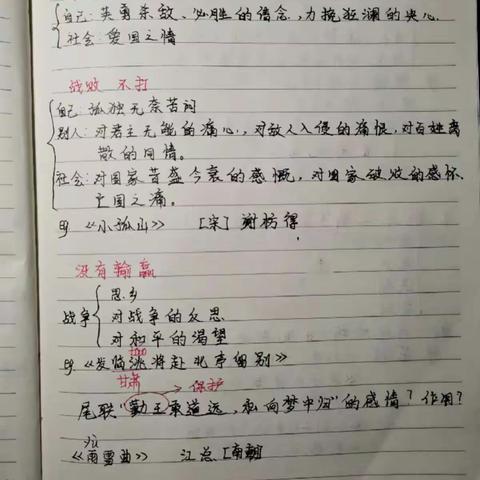 自己：英勇杀敌、必胜的信念，力挽狂澜的决心.
社会：爱国之情
战败 不打
自己：孤独无奈苦闷
别人：对君主无能的痛心，对敌人入侵的痛恨，对百姓离
散的同情。
社会：对国家昔盛今衰的感慨，对国家破败的感怀、
亡国之痛。
eg 《小孤山》 [宋] 谢枋得
没有输赢
战争
思乡
对战争的反思
对和平的渴望
eg 《发临洮将赴北亭留别》
tao
甘肃 → 保护
尾联“勤王来道远，私向梦中归”的感情？作用？
yù
《雨雪曲》 江总 [南朝]